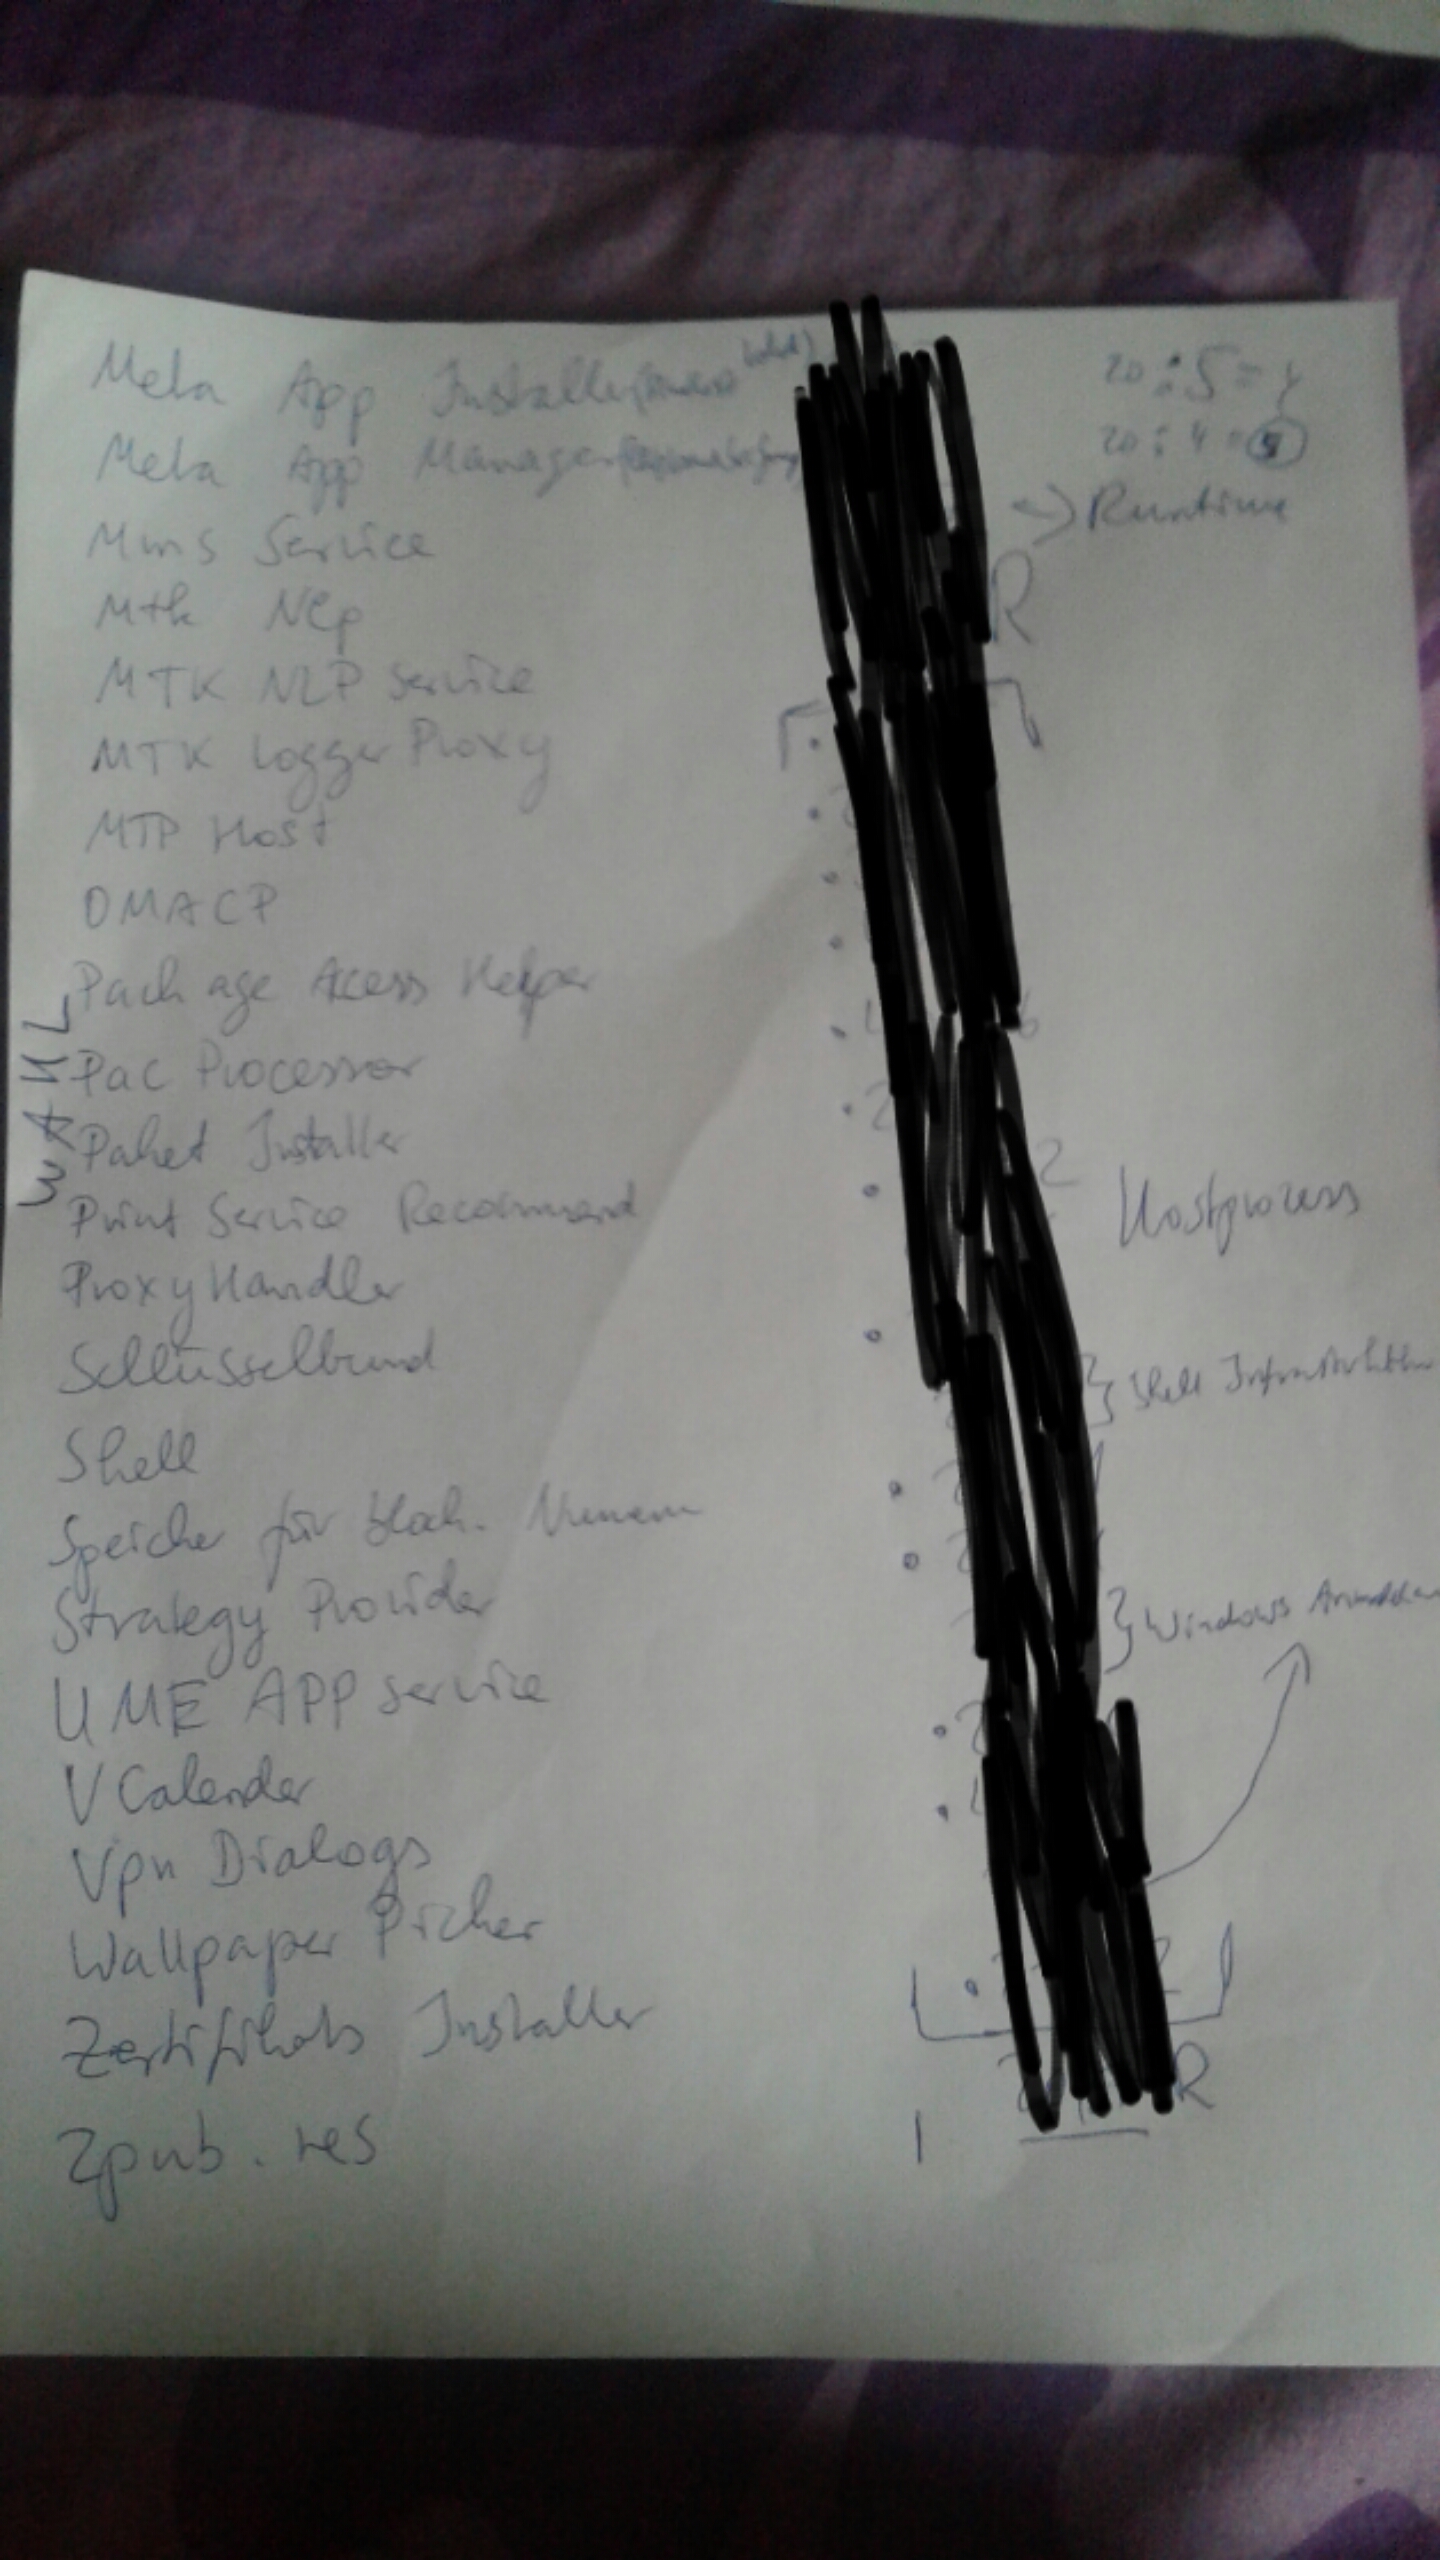 Meta App Installer
Meta App Manager
Mms Service
Mtk Nlp
MTK NLP Service
MTK Logger Proxy
MTP Host
OMACP
Package Access Helper
Pac Processor
Paket Installer
Print Service Recommend
Proxy Handler
Schlüsselbund
Shell
Speicher für block. Nummern
Strategy Provider
UME APP Service
V Calender
Vpn Dialogs
Wallpaper Picker
Zertifikats Installer
Zpub.res
WAHL
20:5=4
20:4=5
-> Runtime
R
2
Hostprozess
} Shell Infrastruktur
} Windows
R